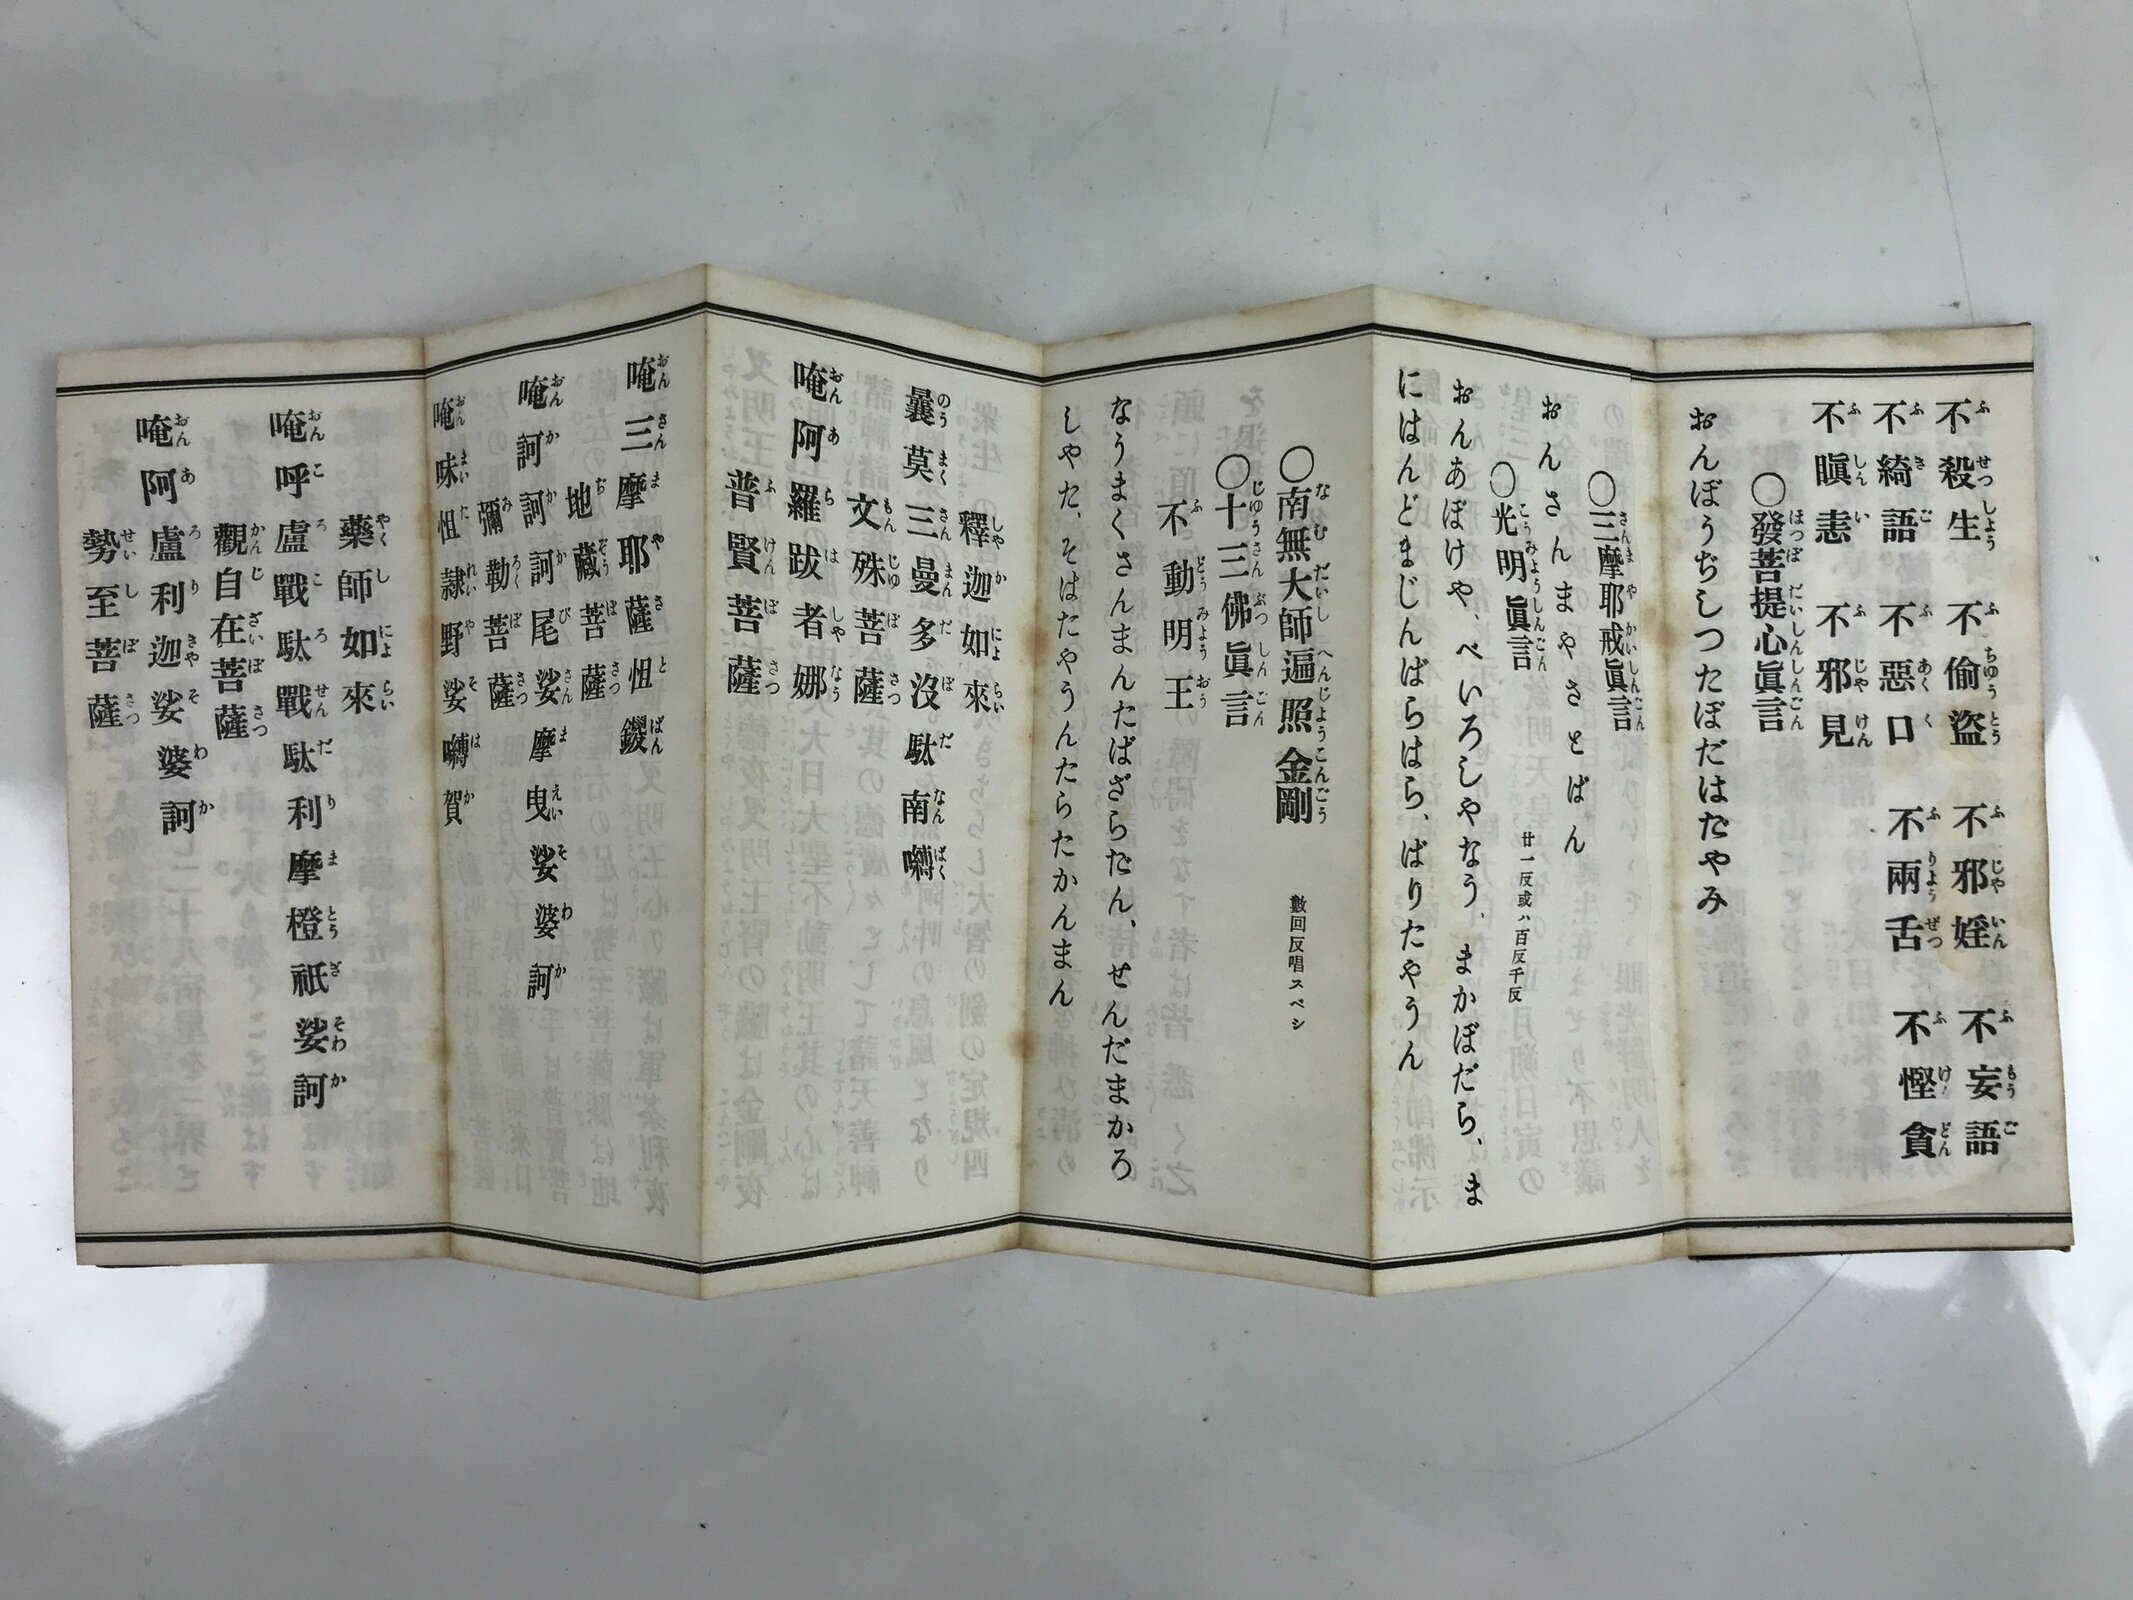 不殺生 不偷盜 不邪婬 不妄語
不綺語 不惡口 不兩舌 不慳貪
不瞋恚 不邪見
○發菩提心眞言
おんぼうぢしつたぼだはだやみ
○三摩耶戒眞言
おんさんまやさとばん
○光明眞言 廿一反或ハ百反千反
おんあぼけや、べいろしやなう、まかぼだら、ま
にはんどまじんばらはら、ばりたやうん
○南無大師遍照金剛 數回反唱スベシ
○十三佛眞言
不動明王
なうまくさんまんたばざらだん、せんだまかろ
しやた、そはたやうんたらたかんまん
釋迦如來
曩莫三曼多沒駄南嚩
文殊菩薩
唵阿羅跛者娜
普賢菩薩
唵三摩耶薩怛鑁
地藏菩薩
唵訶訶訶尾娑摩曳娑婆訶
彌勒菩薩
唵昧怛隷野娑嚩賀
藥師如來
唵呼盧戰駄戰駄利摩橙祇娑訶
觀自在菩薩
唵阿盧利迦娑婆訶
勢至菩薩